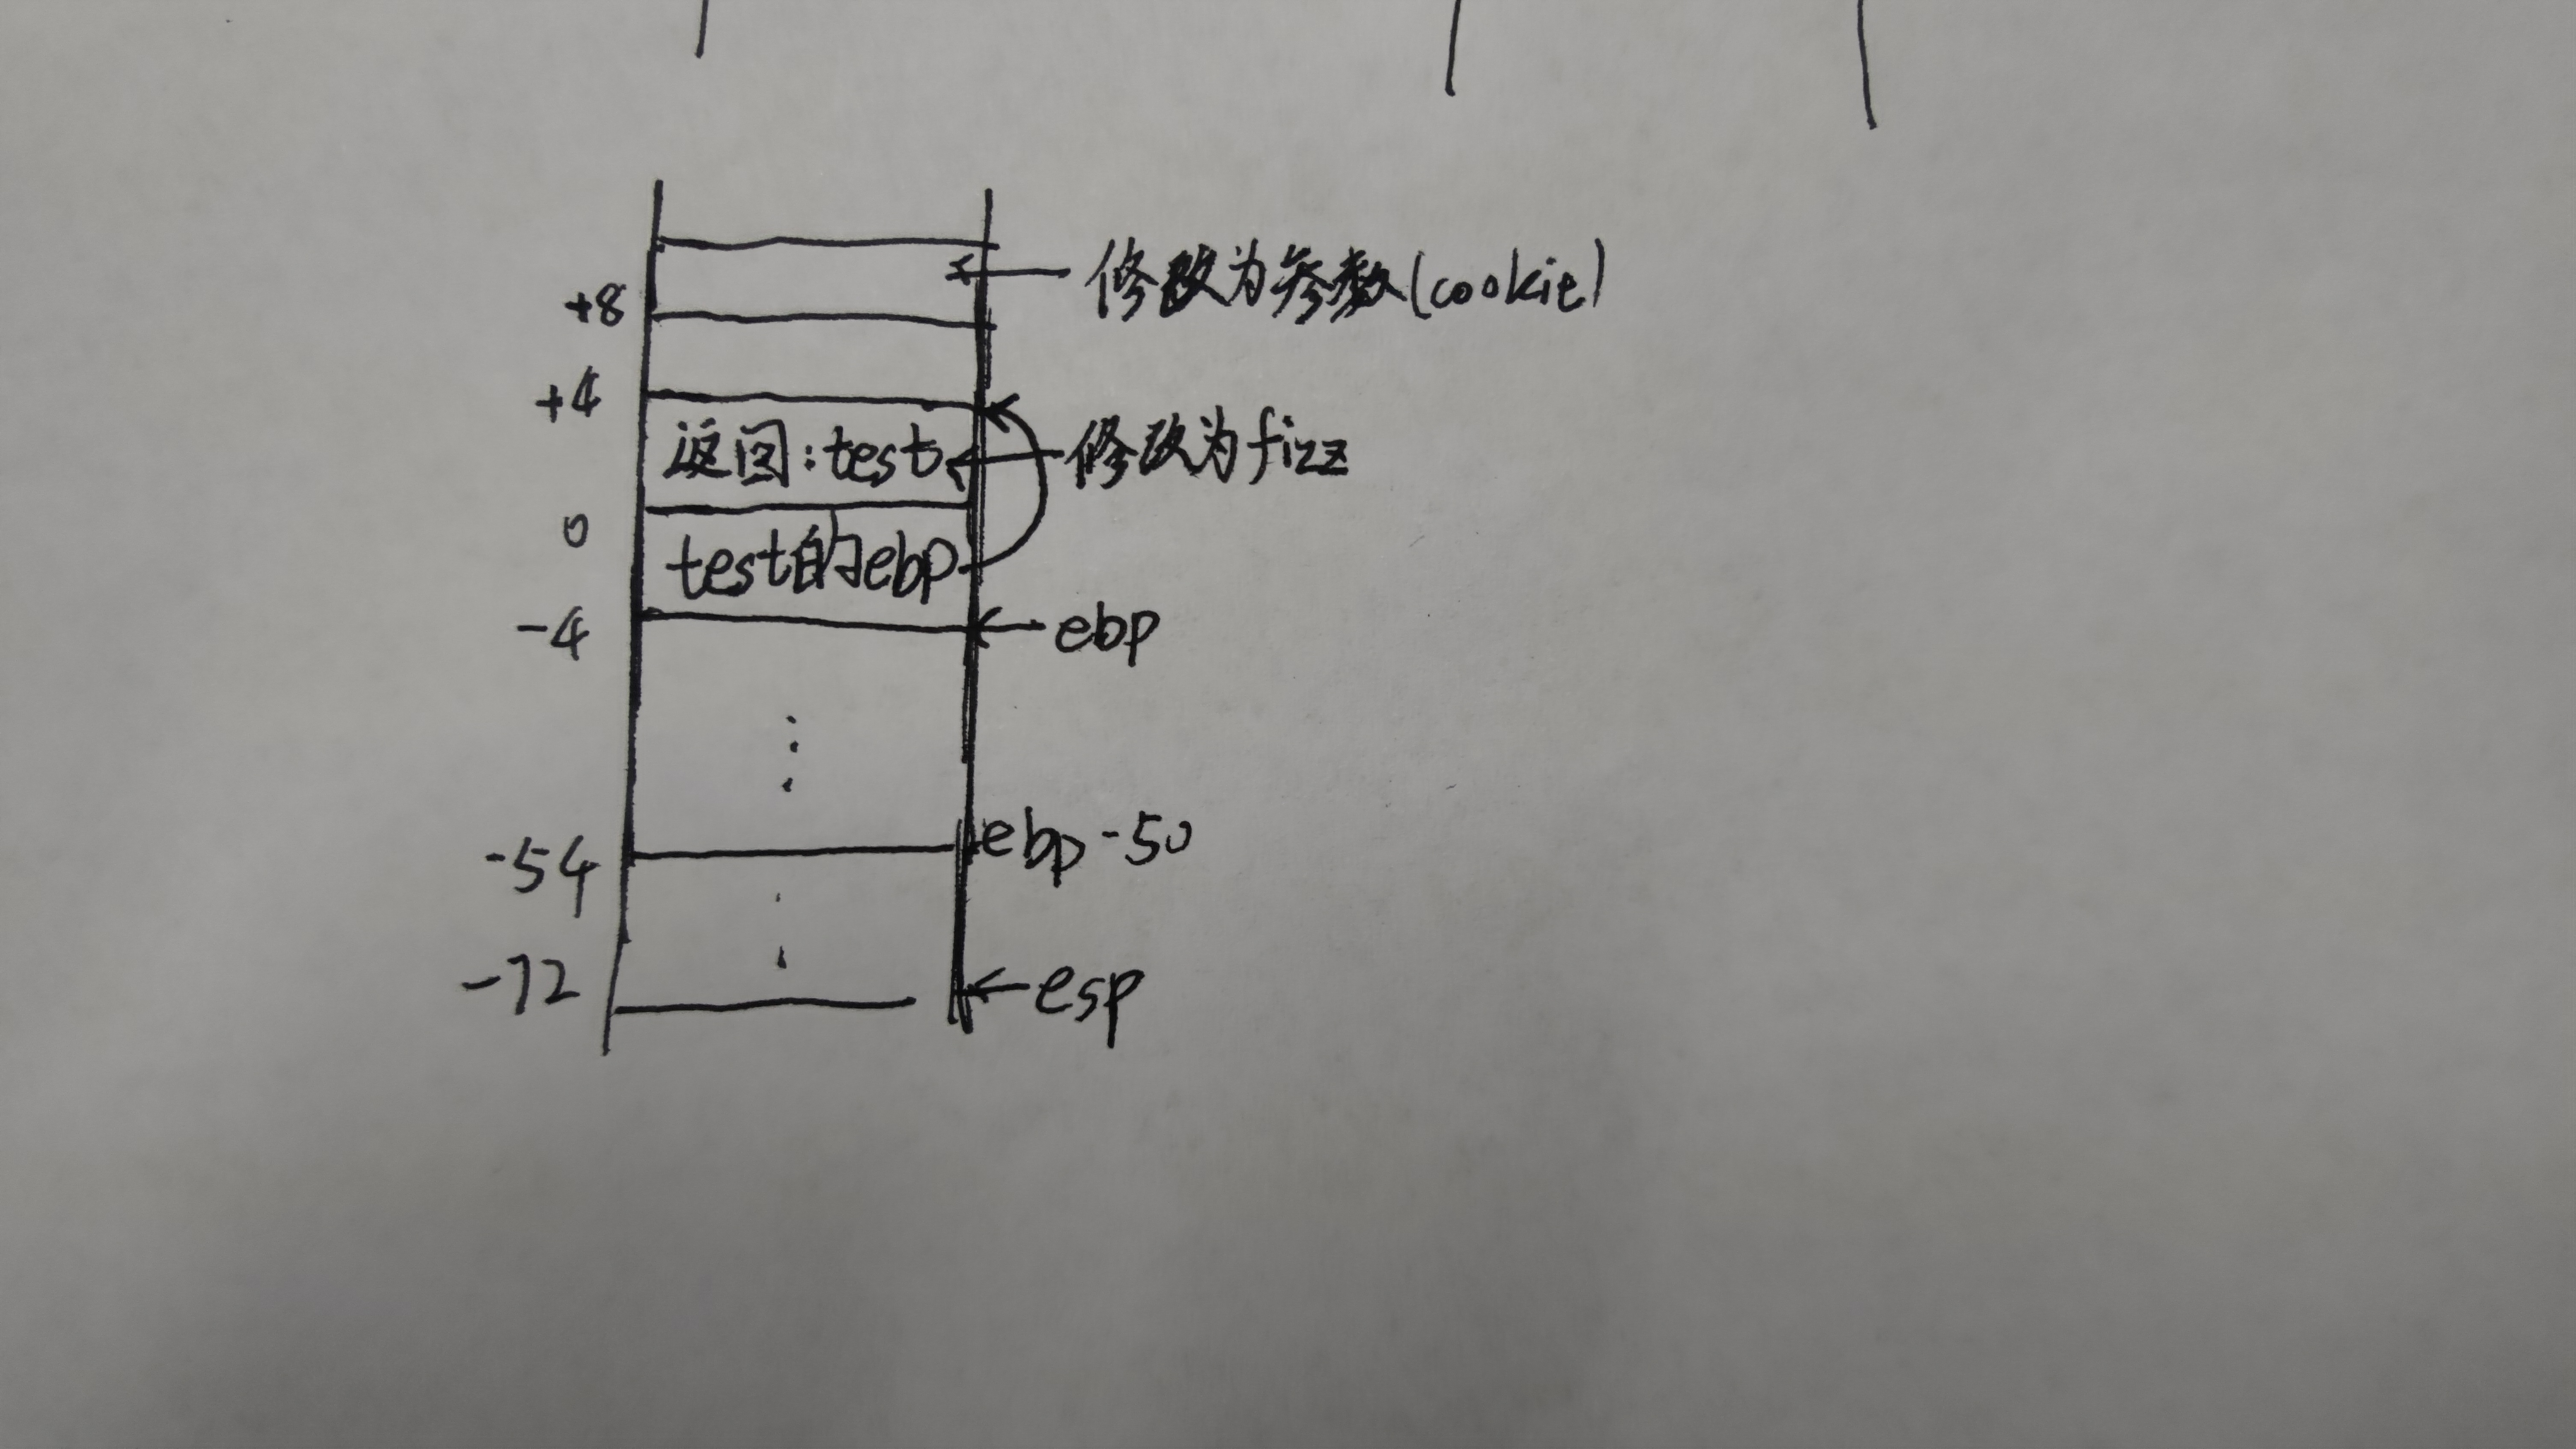 修改为参数(cookie)
+8
+4
返回:test
修改为fizz
0
test的ebp
-4
ebp
-54
ebp-50
-72
esp